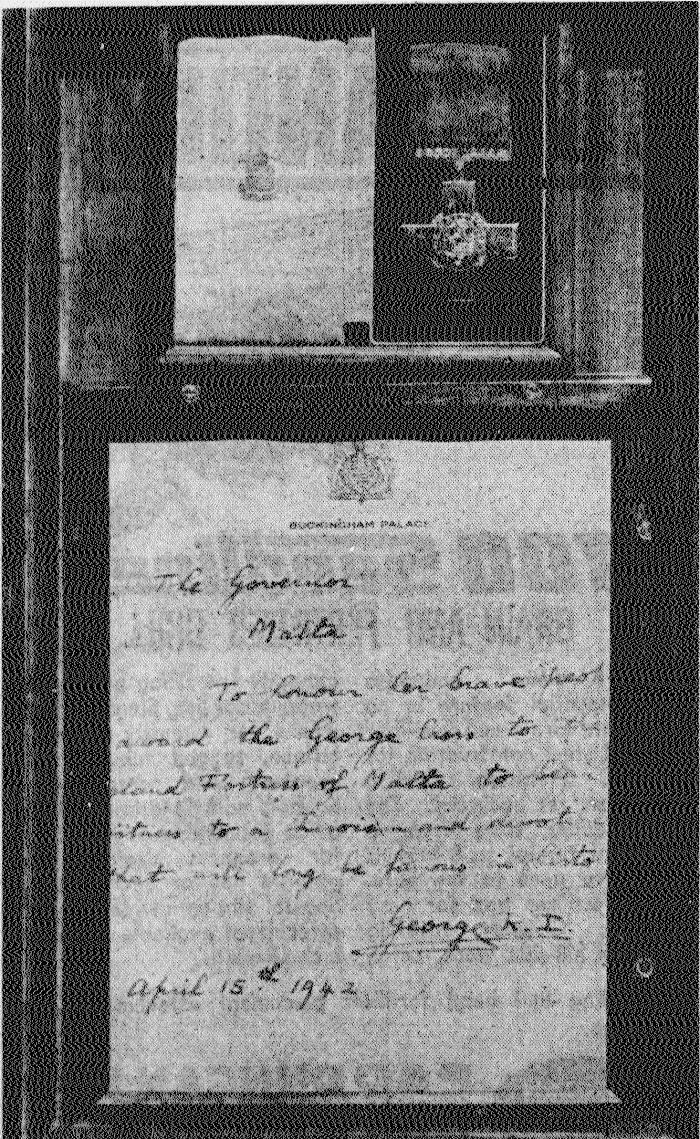 BUCKINGHAM PALACE
The Governor
Malta
To honour her brave peop
award the George Cross to the
sland Fortress of Malta to bear
itness to a heroism and devoti
that will long be famous in histo
George R.I.
April 15th 1942